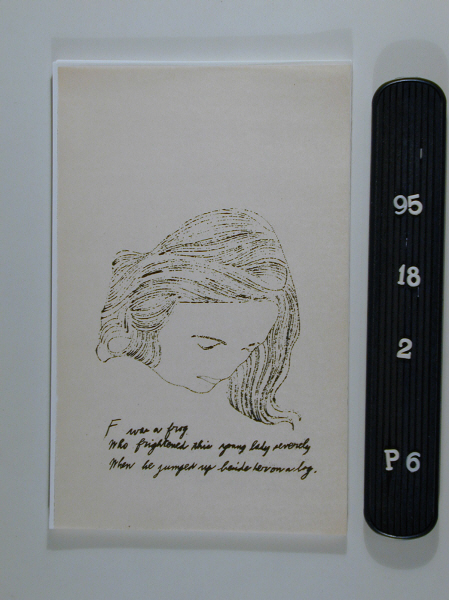 F was a frog
Who frightened this young lady severely
When he jumped up beside her on a log.
95
18
2
P6